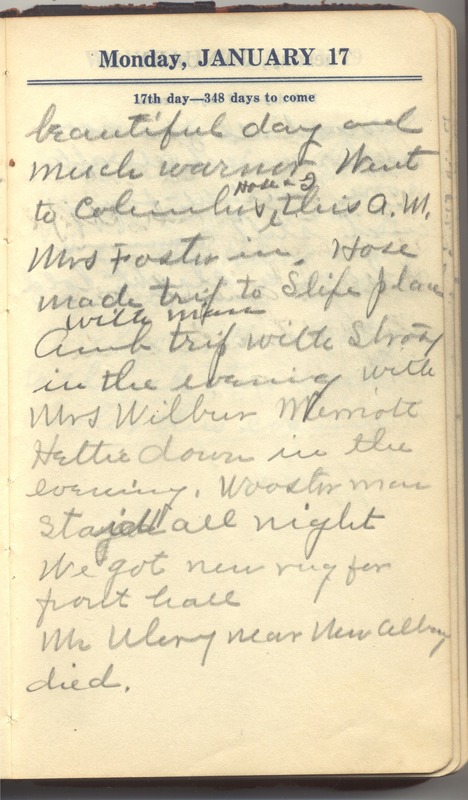 Monday, JANUARY 17
17th day—348 days to come
beautiful day and
much warmer Went
Hose & I
to Columbus, this A.M.
Mrs Foster in. Hose
made trip to Slife place
with man
Amb trip with Strong
in the evening with
Mrs Wilbur Merriott
Hettie down in the
evening. Wooster man
staid all night
We got new rug for
front hall
Mr Ulery near New Albany
died.